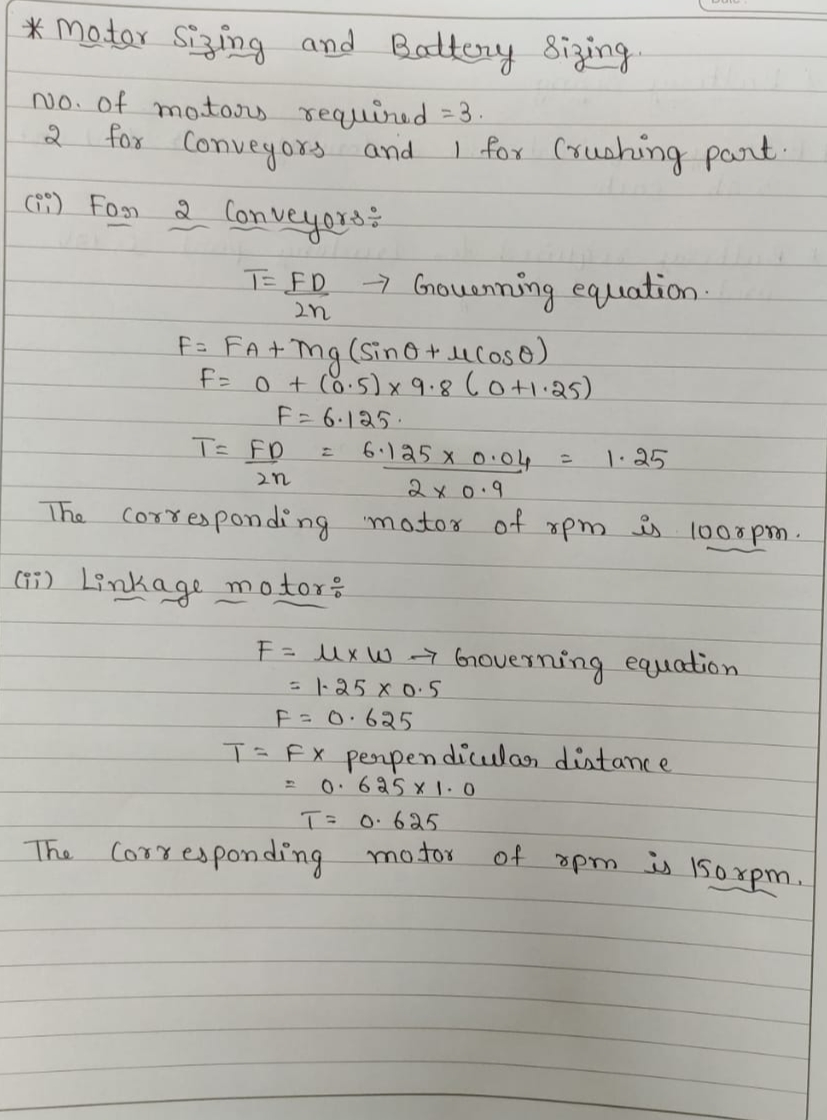 * Motor Sizing and Battery Sizing.
No. of motors required = 3.
2 for Conveyors and 1 for Crushing part.
(ii) For 2 Conveyors:
T = FD/2n → Governing equation.
F = FA + mg (sinθ + μcosθ)
F = 0 + (0.5) × 9.8 (0 + 1.25)
F = 6.125.
T = FD/2n = 6.125 × 0.04 / 2 × 0.9 = 1.25
The corresponding motor of rpm is 100rpm.
(ii) Linkage motor:
F = μ × w → Governing equation
= 1.25 × 0.5
F = 0.625
T = F × perpendicular distance
= 0.625 × 1.0
T = 0.625
The Corresponding motor of rpm is 150rpm.